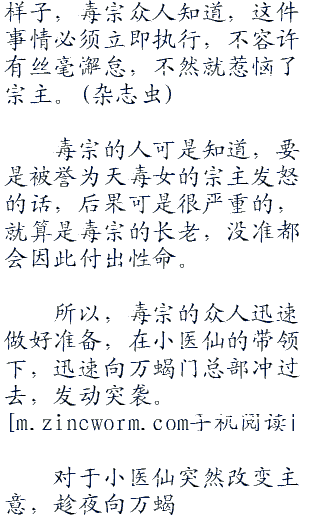 样子，毒宗众人知道，这件
事情必须立即执行，不容许
有丝毫懈怠，不然就惹恼了
宗主。(杂志虫)
毒宗的人可是知道，要
是被誉为天毒女的宗主发怒
的话，后果可是很严重的，
就算是毒宗的长老，没准都
会因此付出性命。
所以，毒宗的众人迅速
做好准备，在小医仙的带领
下，迅速向万蝎门总部冲过
去，发动突袭。
[m.zincworm.com手机阅读i
对于小医仙突然改变主
意，趁夜向万蝎